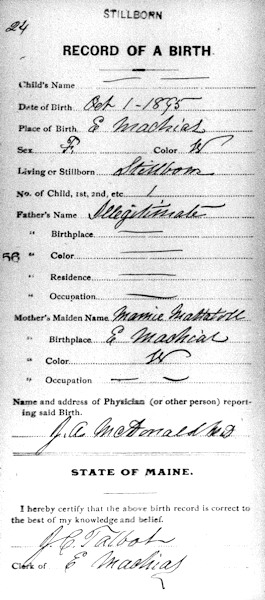 STILLBORN
24
RECORD OF A BIRTH.
Child's Name — —
Date of Birth Oct 1 - 1895
Place of Birth E Machias
Sex F. Color W
Living or Stillborn Stillborn
No. of Child, 1st, 2nd, etc. 1
Father's Name Illegitimate
" Birthplace —
56 " Color —
" Residence —
" Occupation —
Mother's Maiden Name Mamie
" Birthplace E Machias
" Color W
" Occupation — —
Name and address of Physician (or other person) report-
ing said Birth.
J. A. McDonald M D
STATE OF MAINE.
I hereby certify that the above birth record is correct to
the best of my knowledge and belief.
J. C. Talbot
Clerk of E Machias